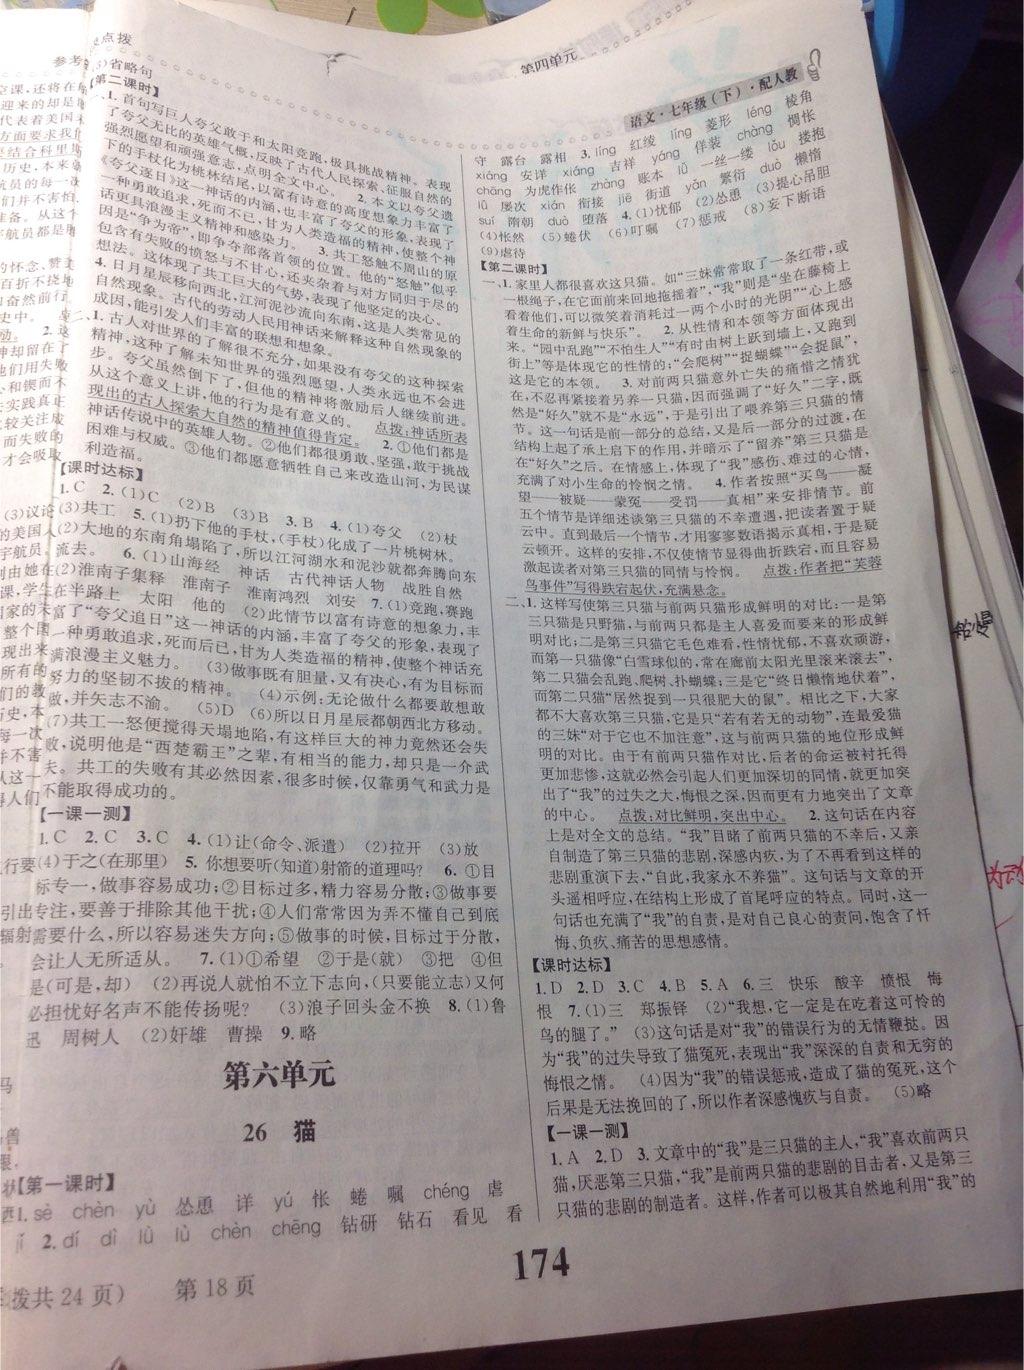 点拨
第四单元
语文·七年级(下)·配人教
(5)省略句
【第二课时】
一、1. 首句写巨人夸父敢于和太阳竞跑，极具挑战精神。表现
了夸父无比的英雄气概，反映了古代人民探索、征服自然的
强烈愿望和顽强意志，点明全文中心。 2. 本文以夸父遗
下的手杖化为桃林结尾，以富有诗意的高度想象力丰富了
《夸父逐日》这一神话的内涵，也丰富了夸父的形象，表现了
一种勇敢追求，死而不已，甘为人类造福的精神，使整个神
话更具浪漫主义精神和感染力。 3. 共工怒触不周山的原
因是“争为帝”，即争夺部落首领的位置。他的“怒触”似乎
包含有失败的愤怒与不甘心，还夹杂着与对方同归于尽的
想法。这体现了共工巨大的气势，表现了他坚定的决心。
4. 日月星辰移向西北，江河泥沙流向东南，这是人类常见的
自然现象。古代的劳动人民用神话来解释这种自然现象的
成因，能引发人们丰富的联想和想象。
二、1. 古人对世界的了解很不充分，如果没有夸父的这种探索
精神，这种了解未知世界的强烈愿望，人类永远也不会进
步。夸父虽然倒下了，但他的精神将激励后人继续前进。
从这个意义上讲，他的行为是有意义的。 点拨：神话所表
现出的古人探索大自然的精神值得肯定。 2. ①他们都是
神话传说中的英雄人物。②他们都很勇敢、坚强，敢于挑战
困难与权威。③他们都愿意牺牲自己来改造山河，为民谋
利造福。
【课时达标】
1. C 2. (1)C (2)B (3)B 3. B 4. (1)夸父 (2)杖
(3)共工 5. (1)扔下他的手杖，(手杖)化成了一片桃树林。
(2)大地的东南角塌陷了，所以江河湖水和泥沙就都奔腾向东
流去。 6. (1)山海经 神话 古代神话人物 战胜自然
(2)淮南子集释 淮南子 淮南鸿烈 刘安 7. (1)竞跑，赛跑
在半路上 太阳 他的 (2)此情节以富有诗意的想象力，丰
富了“夸父追日”这一神话的内涵，丰富了夸父的形象，表现了
一种勇敢追求，死而后已，甘为人类造福的精神，使整个神话充
满浪漫主义魅力。 (3)做事既有胆量，又有决心，有为目标而
努力的坚韧不拔的精神。 (4)示例：无论做什么都要敢想敢
做，并矢志不渝。 (5)D (6)所以日月星辰都朝西北方移动。
(7)共工一怒便搅得天塌地陷，有这样巨大的神力竟然还会失
败，说明他是“西楚霸王”之辈，有相当的能力，却只是一介武
夫。共工的失败有其必然因素，很多时候，仅靠勇气和武力是
不能取得成功的。
【一课一测】
1. C 2. C 3. C 4. (1)让(命令、派遣) (2)拉开 (3)放
(4)于之(在那里) 5. 你想要听(知道)射箭的道理吗？ 6. ①目
标专一，做事容易成功；②目标过多，精力容易分散；③做事要
专注，要善于排除其他干扰；④人们常常因为弄不懂自己到底
需要什么，所以容易迷失方向；⑤做事的时候，目标过于分散，
会让人无所适从。 7. (1)①希望 ②于是(就) ③把 ④但
是(可是，却) (2)再说人就怕不立下志向，(只要能立志)又何
必担忧好名声不能传扬呢？ (3)浪子回头金不换 8. (1)鲁
迅 周树人 (2)奸雄 曹操 9. 略
第六单元
26 猫
【第一课时】
1. sè chèn yù 怂恿 详 yú 怅 蜷 嘱 chéng 虐
jī 2. dí dì lǜ lù chèn chēng 钻研 钻石 看见 看
守 露台 露相 3. líng 红绫 líng 菱形 léng 棱角
xiáng 安详 xiáng 吉祥 yáng 佯装 chàng 惆怅
chāng 为虎作伥 zhàng 账本 lǚ 一丝一缕 lǒu 搂抱
lǚ 屡次 xián 衔接 jiē 街道 yán 繁衍 duò 懒惰
suí 隋朝 duò 堕落 4. (1)忧郁 (2)怂恿 (3)提心吊胆
(4)怅然 (5)蜷伏 (6)叮嘱 (7)惩戒 (8)妄下断语
(9)虐待
【第二课时】
一、1. 家里人都很喜欢这只猫。如“三妹常常取了一条红带，或
一根绳子，在它面前来回地拖摇着”，“我”则是“坐在藤椅上
看着他们，可以微笑着消耗过一两个小时的光阴”“心上感
着生命的新鲜与快乐”。 2. 从性情和本领等方面体现出
来。“园中乱跑”“不怕生人”“有时由树上跃到墙上，又跑到
街上”等是体现它的性情的；“会爬树”“捉蝴蝶”“会捉鼠”，
这是它的本领。 3. 对前两只猫意外亡失的痛惜之情犹
在，不忍再紧接着另养一只猫，因而强调了“好久”二字，既
然是“好久”就不是“永远”，于是引出了喂养第三只猫的情
节。这一句话是前一部分的总结，又是后一部分的过渡，在
结构上起了承上启下的作用，并暗示了“留养”第三只猫是
在“好久”之后。在情感上，体现了“我”感伤、难过的心情，
充满了对小生命的怜悯之情。 4. 作者按照“买鸟——凝
望——被疑——蒙冤——受罚——真相”来安排情节。前
五个情节是详细述谈第三只猫的不幸遭遇，把读者置于疑
云中。直到最后一个情节，才用寥寥数语揭示真相，于是疑
云顿开。这样的安排，不仅使情节显得曲折跌宕，而且容易
激起读者对第三只猫的同情与怜悯。 点拨：作者把“芙蓉
鸟事件”写得跌宕起伏，充满悬念。
二、1. 这样写使第三只猫与前两只猫形成鲜明的对比：一是第
三只猫是只野猫，与前两只都是主人喜爱而要来的形成鲜
明对比；二是第三只猫它毛色难看，性情忧郁，不喜欢顽游，
而第一只猫像“白雪球似的，常在廊前太阳光里滚来滚去”，
第二只猫会乱跑、爬树、扑蝴蝶；三是它“终日懒惰地伏着”，
而第二只猫“居然捉到一只很肥大的鼠”。 相比之下，大家
都不大喜欢第三只猫，它是只“若有若无的动物”，连最爱猫
的三妹“对于它也不加注意”，这与前两只猫的地位形成鲜
明的对比。由于有前两只猫作对比，后者的命运被衬托得
更加悲惨，这就必然会引起人们更加深切的同情，就更加突
出了“我”的过失之大，悔恨之深，因而更有力地突出了文章
的中心。 点拨：对比鲜明，突出中心。 2. 这句话在内容
上是对全文的总结。“我”目睹了前两只猫的不幸后，又亲
自制造了第三只猫的悲剧，深感内疚，为了不再看到这样的
悲剧重演下去，“自此，我家永不养猫”。这句话与文章的开
头遥相呼应，在结构上形成了首尾呼应的特点。同时，这一
句话也充满了“我”的自责，是对自己良心的责问，饱含了忏
悔、负疚、痛苦的思想感情。
【课时达标】
1. D 2. D 3. C 4. B 5. A 6. 三 快乐 酸辛 愤恨 悔
恨 7. (1)三 郑振铎 (2)“我想，它一定是在吃着这可怜的
鸟的腿了。” (3)这句话是对“我”的错误行为的无情鞭挞。因
为“我”的过失导致了猫冤死，表现出“我”深深的自责和无穷的
悔恨之情。 (4)因为“我”的错误惩戒，造成了猫的冤死，这个
后果是无法挽回的了，所以作者深感愧疚与自责。 (5)略
【一课一测】
1. A 2. D 3. 文章中的“我”是三只猫的主人，“我”喜欢前两只
猫，厌恶第三只猫，“我”是前两只猫的悲剧的目击者，又是第三
只猫的悲剧的制造者。这样，作者可以极其自然地利用“我”的
174
拨共24页) 第18页